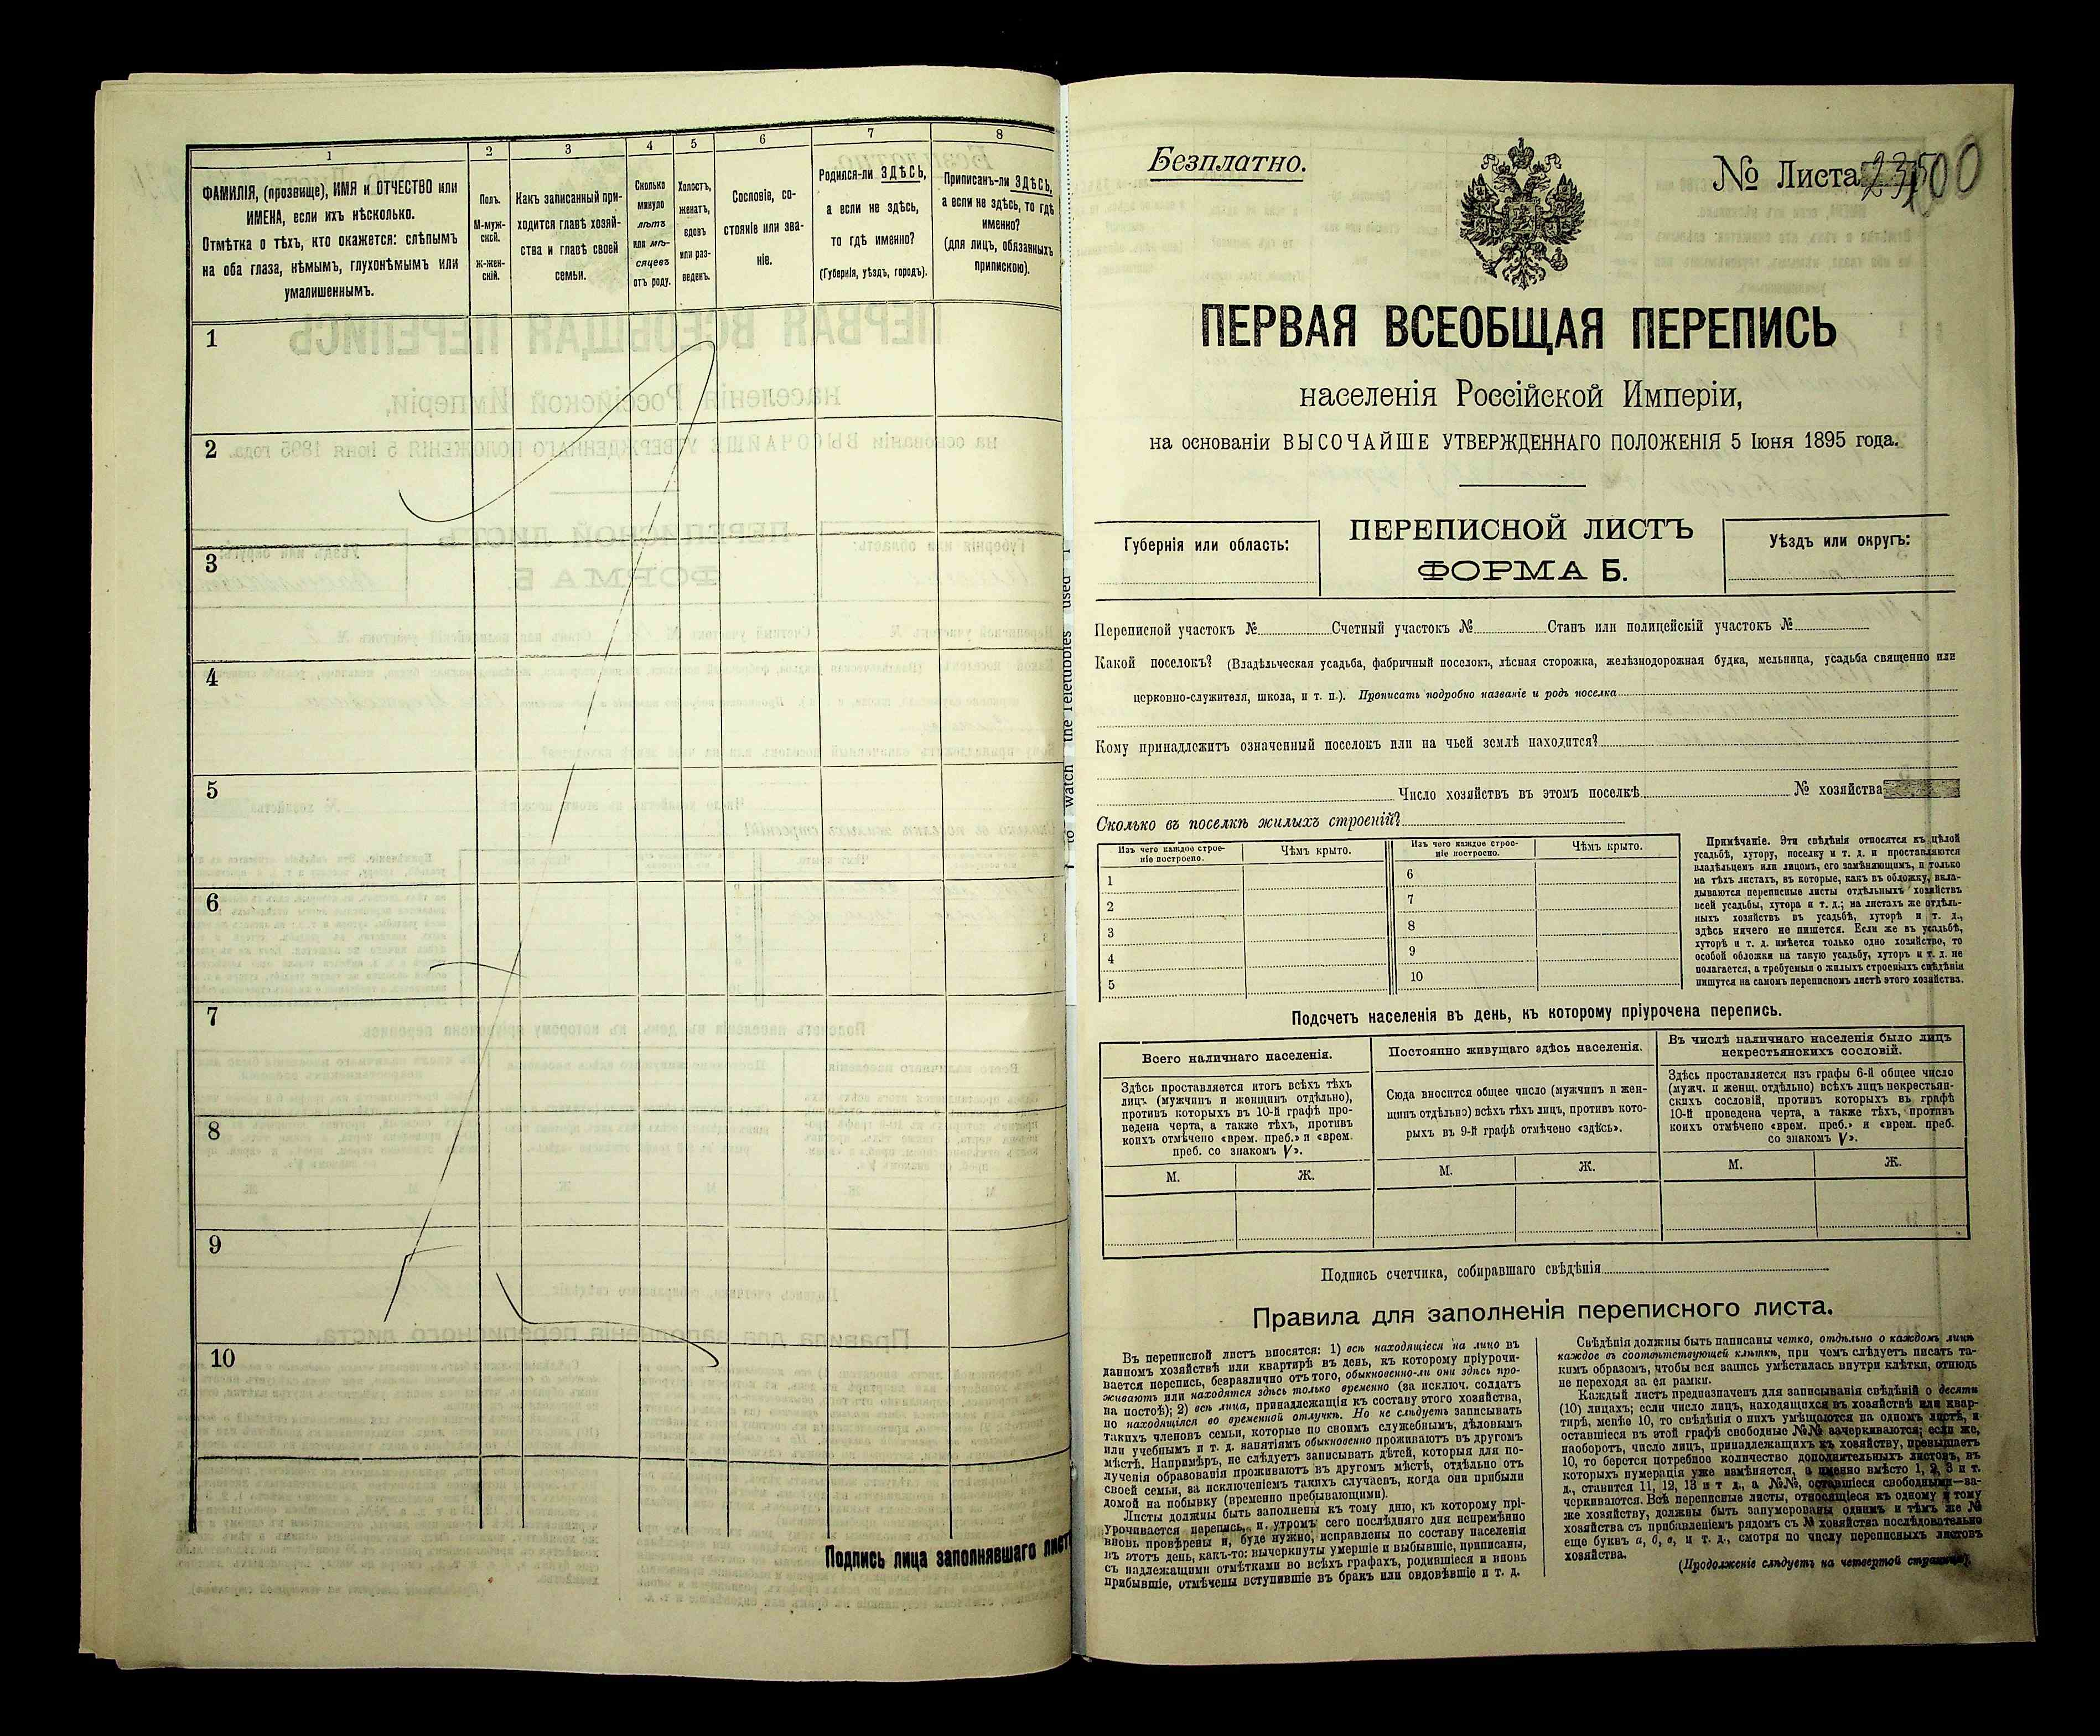 1
2
3
4
5
6
7
8
ФАМИЛІЯ, (прозвище), ИМЯ и ОТЧЕСТВО или
ИМЕНА, если ихъ нѣсколько.
Отмѣтка о тѣхъ, кто окажется: слѣпымъ
на оба глаза, нѣмымъ, глухонѣмымъ или
умалишеннымъ.
Полъ.
М-муж-
ской.
ж-жен-
скій.
Какъ записанный при-
ходится главѣ хозяй-
ства и главѣ своей
семьи.
Сколько
минуло
лѣтъ
или мѣ-
сяцевъ
отъ роду.
Холостъ,
женатъ,
вдовъ
или раз-
веденъ.
Сословіе, со-
стояніе или зва-
ніе.
Родился-ли ЗДѢСЬ,
а если не здѣсь,
то гдѣ именно?
(Губернія, уѣздъ, городъ).
Приписанъ-ли ЗДѢСЬ,
а если не здѣсь, то гдѣ
именно?
(для лицъ, обязанныхъ
припискою).
1
2
3
4
5
6
7
8
9
10
Подпись лица заполнявшаго лист
to watch the Teletubbies used
Безплатно.
№ Листа
ПЕРВАЯ ВСЕОБЩАЯ ПЕРЕПИСЬ
населенія Россійской Имперіи,
на основаніи ВЫСОЧАЙШЕ УТВЕРЖДЕННАГО ПОЛОЖЕНІЯ 5 Іюня 1895 года.
Губернія или область:
ПЕРЕПИСНОЙ ЛИСТЪ
ФОРМА Б.
Уѣздъ или округъ:
Переписной участокъ № Счетный участокъ № Станъ или полицейскій участокъ №
Какой поселокъ? (Владѣльческая усадьба, фабричный поселокъ, лѣсная сторожка, желѣзнодорожная будка, мельница, усадьба священно или
церковно-служителя, школа, и т. п.). Прописать подробно названіе и родъ поселка
Кому принадлежитъ означенный поселокъ или на чьей землѣ находится?
Число хозяйствъ въ этомъ поселкѣ № хозяйства
Сколько въ поселкѣ жилыхъ строеній?
Изъ чего каждое строе-
ніе построено.
Чѣмъ крыто.
Изъ чего каждое строе-
ніе построено.
Чѣмъ крыто.
1
2
3
4
5
6
7
8
9
10
Примѣчаніе. Эти свѣдѣнія относятся къ цѣлой
усадьбѣ, хутору, поселку и т. д. и проставляются
владѣльцемъ или лицомъ, его замѣняющимъ, и только
на тѣхъ листахъ, въ которые, какъ въ обложку, вкла-
дываются переписные листы отдѣльныхъ хозяйствъ
всей усадьбы, хутора и т. д.; на листахъ же отдѣль-
ныхъ хозяйствъ въ усадьбѣ, хуторѣ и т. д.,
здѣсь ничего не пишется. Если же въ усадьбѣ,
хуторѣ и т. д. имѣется только одно хозяйство, то
особой обложки на такую усадьбу, хуторъ и т. д. не
полагается, а требуемыя о жилыхъ строеніяхъ свѣдѣнія
пишутся на самомъ переписномъ листѣ этого хозяйства.
Подсчетъ населенія въ день, къ которому пріурочена перепись.
Всего наличнаго населенія.
Постоянно живущаго здѣсь населенія.
Въ числѣ наличнаго населенія было лицъ
некрестьянскихъ сословій.
Здѣсь проставляется итогъ всѣхъ тѣхъ
лицъ (мужчинъ и женщинъ отдѣльно),
противъ которыхъ въ 10-й графѣ про-
ведена черта, а также тѣхъ, противъ
коихъ отмѣчено «врем. преб.» и «врем.
преб. со знакомъ V».
Сюда вносится общее число (мужчинъ и жен-
щинъ отдѣльно) всѣхъ тѣхъ лицъ, противъ кото-
рыхъ въ 9-й графѣ отмѣчено «здѣсь».
Здѣсь проставляется изъ графы 6-й общее число
(мужч. и женщ. отдѣльно) всѣхъ лицъ некрестьян-
скихъ сословій, противъ которыхъ въ графѣ
10-й проведена черта, а также тѣхъ, противъ
коихъ отмѣчено «врем. преб.» и «врем. преб.
со знакомъ V».
М.
Ж.
М.
Ж.
М.
Ж.
Подпись счетчика, собиравшаго свѣдѣнія
Правила для заполненія переписного листа.
Въ переписной листъ вносятся: 1) всѣ находящіеся на лицо въ
данномъ хозяйствѣ или квартирѣ въ день, къ которому пріурочи-
вается перепись, безразлично отъ того, обыкновенно-ли они здѣсь про-
живаютъ или находятся здѣсь только временно (за исключ. солдатъ
на постоѣ); 2) всѣ лица, принадлежащія къ составу этого хозяйства,
но находящіяся во временной отлучкѣ. Но не слѣдуетъ записывать
такихъ членовъ семьи, которые по своимъ служебнымъ, дѣловымъ
или учебнымъ и т. д. занятіямъ обыкновенно проживаютъ въ другомъ
мѣстѣ. Напримѣръ, не слѣдуетъ записывать дѣтей, которыя для по-
лученія образованія проживаютъ въ другомъ мѣстѣ, отдѣльно отъ
своей семьи, за исключеніемъ такихъ случаевъ, когда они прибыли
домой на побывку (временно пребывающими).
Листы должны быть заполнены къ тому дню, къ которому прі-
урочивается перепись, и утромъ сего послѣдняго дня непремѣнно
вновь провѣрены и, буде нужно, исправлены по составу населенія
въ этотъ день, какъ-то: вычеркнуты умершіе и выбывшіе, приписаны,
съ надлежащими отмѣтками во всѣхъ графахъ, родившіеся и вновь
прибывшіе, отмѣчены вступившіе въ бракъ или овдовѣвшіе и т. д.
Свѣдѣнія должны быть написаны четко, отдѣльно о каждомъ лицѣ
каждое въ соотвѣтствующей клѣткѣ, при чемъ слѣдуетъ писать та-
кимъ образомъ, чтобы вся запись умѣстилась внутри клѣтки, отнюдь
не переходя за ея рамки.
Каждый листъ предназначенъ для записыванія свѣдѣній о десяти
(10) лицахъ; если число лицъ, находящихся въ хозяйствѣ или квар-
тирѣ, менѣе 10, то свѣдѣнія о нихъ умѣщаются на одномъ листѣ, и
оставшіеся въ этой графѣ свободные №№ зачеркиваются; если же,
наоборотъ, число лицъ, принадлежащихъ къ хозяйству, превышаетъ
10, то берется потребное количество дополнительныхъ листовъ, въ
которыхъ нумерація уже измѣняется, а именно вмѣсто 1, 2, 3 и т.
д., ставится 11, 12, 13 и т д., а №№, оставшіеся свободными—за-
черкиваются. Всѣ переписные листы, относящіеся къ одному и тому
же хозяйству, должны быть занумерованы однимъ и тѣмъ же №
хозяйства съ прибавленіемъ рядомъ съ № хозяйства послѣдовательно
еще буквъ а, б, в, и т. д., смотря по числу переписныхъ листовъ
хозяйства.
(Продолженіе слѣдуетъ на четвертой страницѣ).